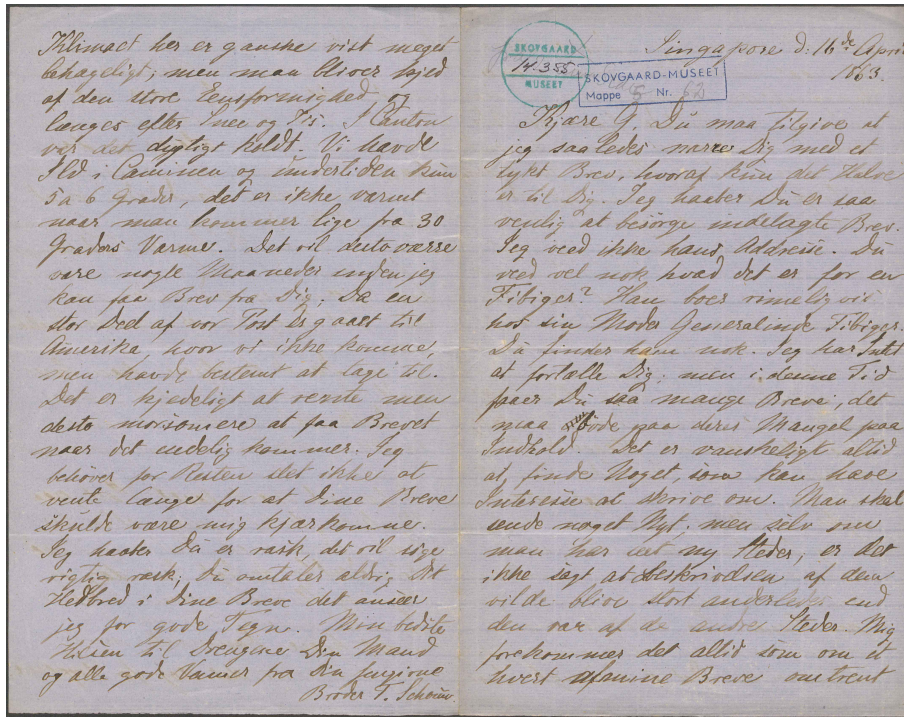 Klimaet her er ganske vist meget
behageligt; men man bliver kjed
af den store Eensformighed og
længes efter Snee og Iis. I Canton
var det dygtigt koldt. Vi havde
Ild i Caminen og undertiden kun
5 a 6 Grader, det er ikke varmt
naar man kommer lige fra 30
Graders Varme. Det vil desto værre
vare nogle Maaneder inden jeg
kan faa Brev fra Dig; Da en
stor Deel af vor Post er gaaet til
Amerika, hvor vi ikke komme,
men havde bestemt at tage til.
Det er kjedeligt at vente men
desto morsomere at faa Brevet
naar det endelig kommer. Jeg
behøver for Resten slet ikke at
vente længe for at Dine Breve
skulde være mig kjærkomne.
Jeg haaber Du er rask, det vil sige
rigtig rask; Du omtaler aldrig Dit
Helbred i Dine Breve det anseer
jeg for gode Tegn. Min bedste
Hilsen til Drengene Din Mand
og alle gode Venner fra Din hengivne
Broder T. Schouw
SKOVGAARD
14.3.55
MUSEET
SKOVGAARD-MUSEET
Mappe 5 Nr. 62
Singapore d: 16de April
1863.
Kjære G. Du maa tilgive at
jeg saaledes narrer Dig med et
tykt Brev, hvoraf kun det Halve
er til Dig. Jeg haaber Du er saa
venlig at besørge indelagte Brev.
Jeg veed ikke hans Addresse. Du
veed vel nok hvad det er for en
Fibiger? Han boer rimeligviis
hos sin Moder Generalinde Fibiger.
Du finder ham nok. Jeg har Intet
at fortælle Dig; men i denne Tid
faaer Du saa mange Breve, det
maa bøde paa deres Mangel paa
Indhold. Det er vanskeligt altid
at finde Noget, som kan have
Interesse at skrive om. Man skal
sende noget Nyt, men selv om
man har seet ny Steder, er det
ikke sagt at Beskrivelsen af dem
vilde blive stort anderledes end
den var af de andre Steder. Mig
forekommer det altid som om
hvert af mine Breve omtrent